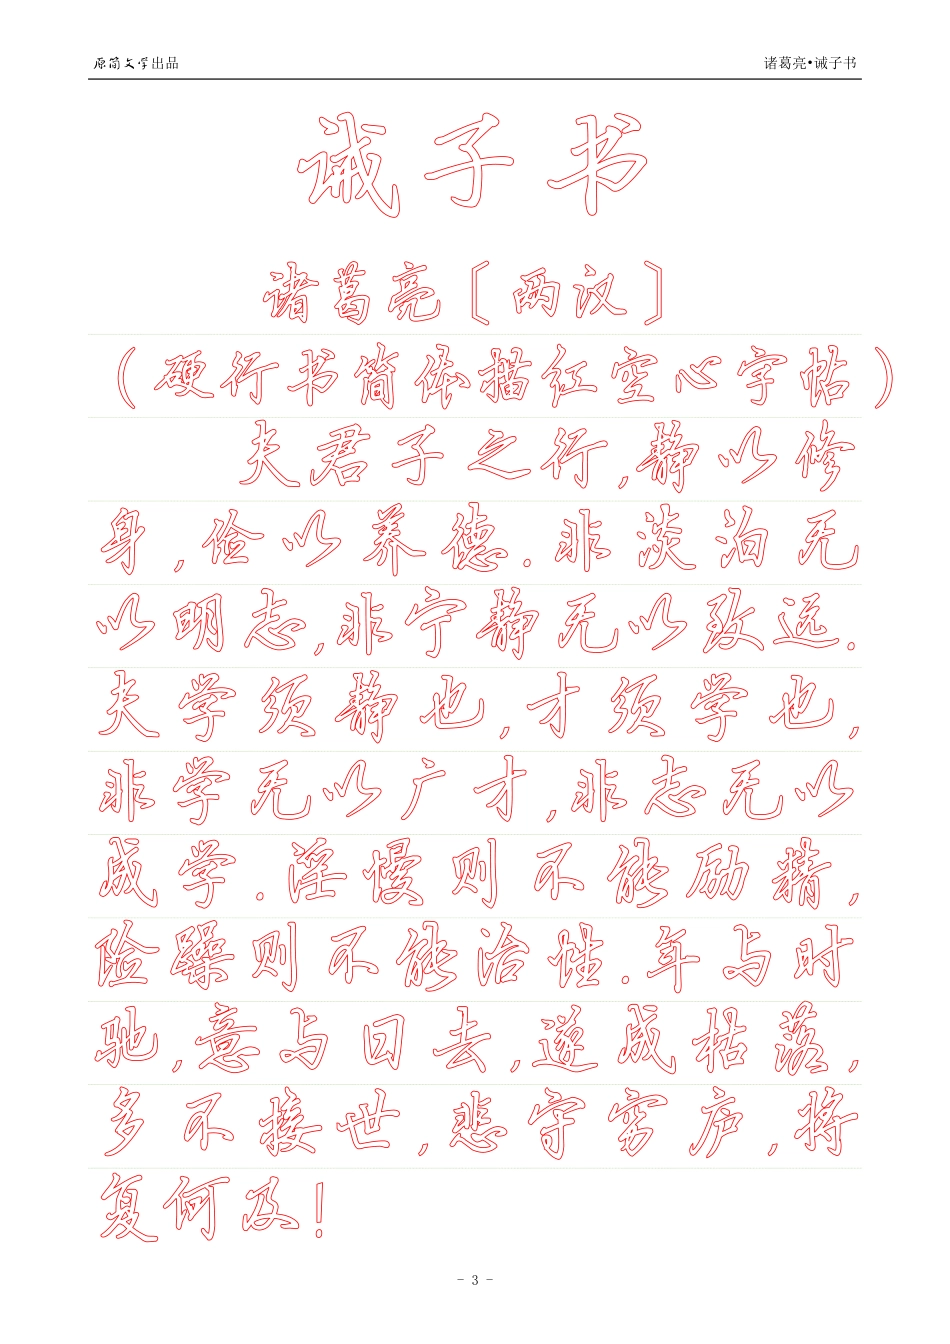 原简文学出品 诸葛亮•诫子书
诫子书
诸葛亮〔两汉〕
(硬行书简体描红空心字帖)
夫君子之行,静以修
身,俭以养德.非淡泊无
以明志,非宁静无以致远.
夫学须静也,才须学也,
非学无以广才,非志无以
成学.淫慢则不能励精,
险躁则不能治性.年与时
驰,意与日去,遂成枯落,
多不接世,悲守穷庐,将
复何及!
- 3 -